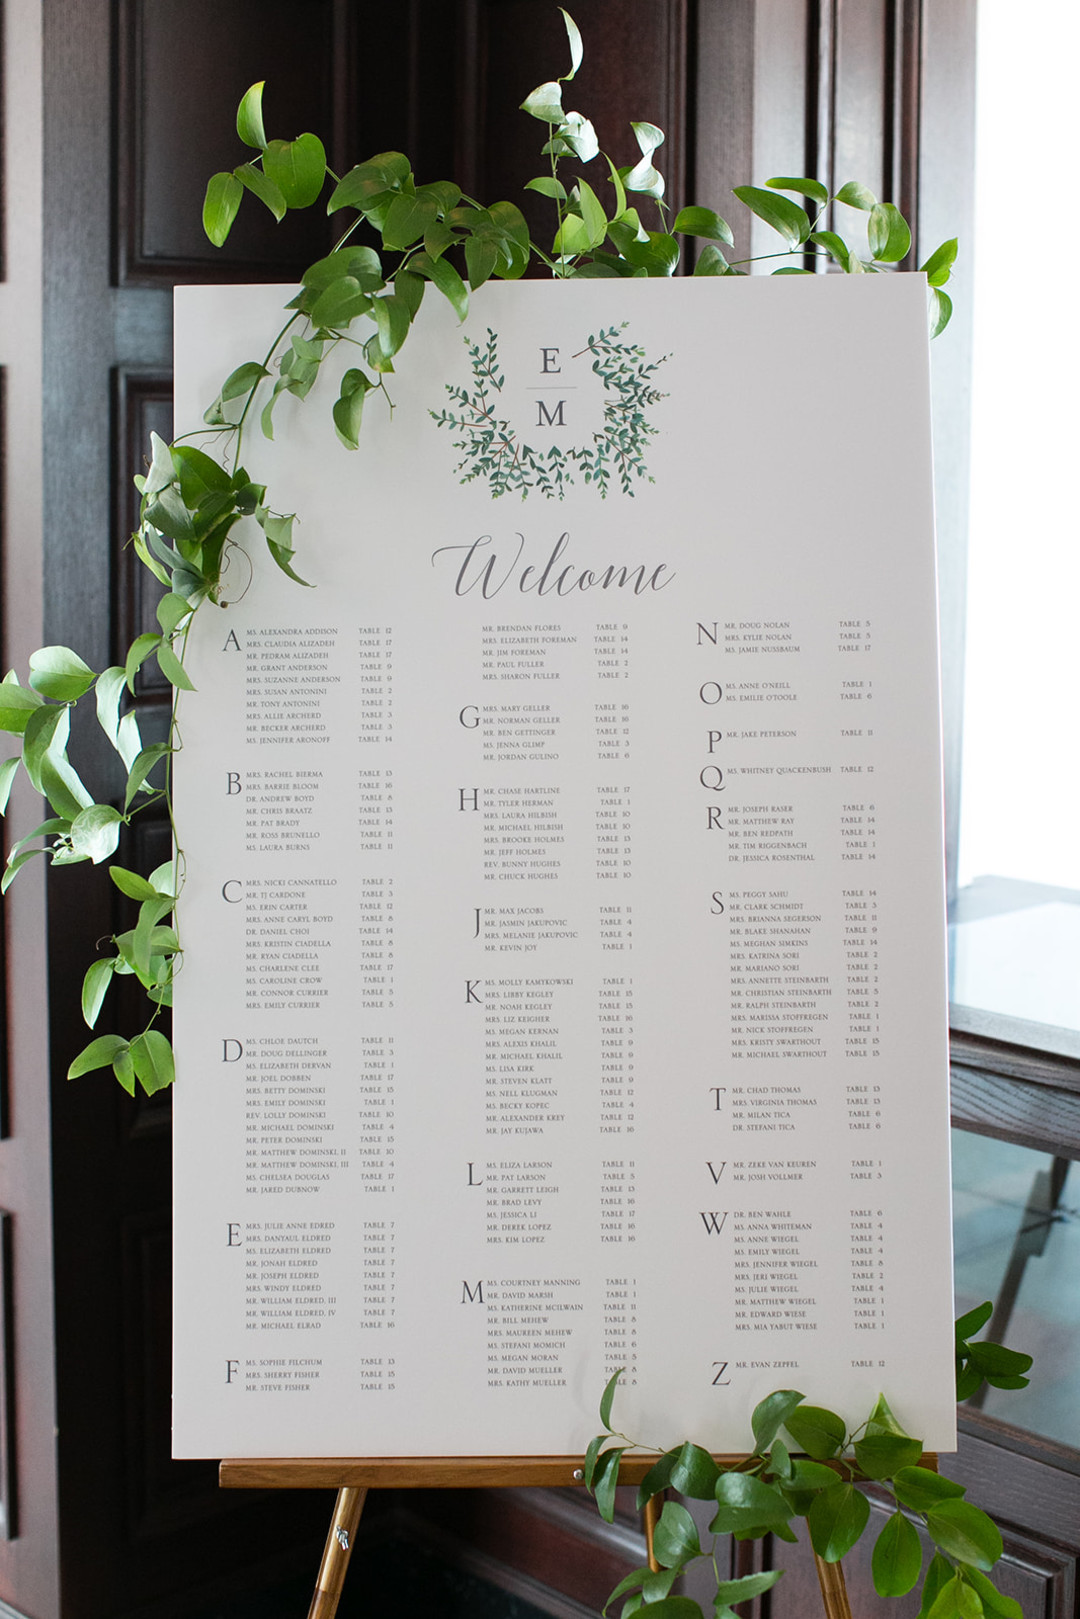 E
M
Welcome
A
MS. ALEXANDRA ADDISON TABLE 12
MRS. CLAUDIA ALIZADEH TABLE 17
MR. PEDRAM ALIZADEH TABLE 17
MR. GRANT ANDERSON TABLE 9
MRS. SUZANNE ANDERSON TABLE 9
MRS. SUSAN ANTONINI TABLE 2
MR. TONY ANTONINI TABLE 2
MRS. ALLIE ARCHERD TABLE 3
MR. BECKER ARCHERD TABLE 3
MS. JENNIFER ARONOFF TABLE 14
B
MRS. RACHEL BIERMA TABLE 13
MRS. BARRIE BLOOM TABLE 16
DR. ANDREW BOYD TABLE 8
MR. CHRIS BRAATZ TABLE 13
MR. PAT BRADY TABLE 14
MR. ROSS BRUNELLO TABLE 11
MS. LAURA BURNS TABLE 11
C
MRS. NICKI CANNATELLO TABLE 2
MR. TJ CARDONE TABLE 3
MS. ERIN CARTER TABLE 12
MRS. ANNE CARYL BOYD TABLE 8
DR. DANIEL CHOI TABLE 14
MRS. KRISTIN CIADELLA TABLE 8
MR. RYAN CIADELLA TABLE 8
MS. CHARLENE CLEE TABLE 17
MS. CAROLINE CROW TABLE 1
MR. CONNOR CURRIER TABLE 5
MRS. EMILY CURRIER TABLE 5
D
MS. CHLOE DAUTCH TABLE 11
MR. DOUG DELLINGER TABLE 3
MS. ELIZABETH DERVAN TABLE 1
MR. JOEL DOBBEN TABLE 17
MRS. BETTY DOMINSKI TABLE 15
MRS. EMILY DOMINSKI TABLE 1
REV. LOLLY DOMINSKI TABLE 10
MR. MICHAEL DOMINSKI TABLE 4
MR. PETER DOMINSKI TABLE 15
MR. MATTHEW DOMINSKI, II TABLE 10
MR. MATTHEW DOMINSKI, III TABLE 4
MS. CHELSEA DOUGLAS TABLE 17
MR. JARED DUBNOW TABLE 1
E
MRS. JULIE ANNE EDRED TABLE 7
MRS. DANYAUL ELDRED TABLE 7
MS. ELIZABETH ELDRED TABLE 7
MR. JONAH ELDRED TABLE 7
MR. JOSEPH ELDRED TABLE 7
MRS. WINDY ELDRED TABLE 7
MR. WILLIAM ELDRED, III TABLE 7
MR. WILLIAM ELDRED, IV TABLE 7
MR. MICHAEL ELBAD TABLE 16
F
MS. SOPHIE FILCHUM TABLE 13
MRS. SHERRY FISHER TABLE 15
MR. STEVE FISHER TABLE 15
MR. BRENDAN FLORES TABLE 9
MRS. ELIZABETH FOREMAN TABLE 14
MR. JIM FOREMAN TABLE 14
MR. PAUL FULLER TABLE 2
MRS. SHARON FULLER TABLE 2
G
MRS. MARY GELLER TABLE 16
MR. NORMAN GELLER TABLE 16
MR. BEN GETTINGER TABLE 12
MS. JENNA GLIMP TABLE 3
MR. JORDAN GULINO TABLE 6
H
MR. CHASE HARTLINE TABLE 17
MR. TYLER HERMAN TABLE 1
MRS. LAURA HILBISH TABLE 10
MR. MICHAEL HILBISH TABLE 10
MRS. BROOKE HOLMES TABLE 13
MR. JEFF HOLMES TABLE 13
REV. BUNNY HUGHES TABLE 10
MR. CHUCK HUGHES TABLE 10
J
MR. MAX JACOBS TABLE 11
MR. JASMIN JAKUPOVIC TABLE 4
MRS. MELANIE JAKUPOVIC TABLE 4
MR. KEVIN JOY TABLE 1
K
MS. MOLLY KAMYKOWSKI TABLE 1
MRS. LIBBY KEGLEY TABLE 15
MR. NOAH KEGLEY TABLE 15
MRS. LIZ KEIGHER TABLE 16
MS. MEGAN KERNAN TABLE 3
MRS. ALEXIS KHALIL TABLE 9
MR. MICHAEL KHALIL TABLE 9
MS. LISA KIRK TABLE 9
MR. STEVEN KLATT TABLE 9
MS. NELL KLUGMAN TABLE 12
MS. BECKY KOPEC TABLE 4
MR. ALEXANDER KREY TABLE 12
MR. JAY KUJAWA TABLE 16
L
MS. ELIZA LARSON TABLE 11
MR. PAT LARSON TABLE 5
MR. GARRETT LEIGH TABLE 13
MR. BRAD LEVY TABLE 16
MS. JESSICA LI TABLE 17
MR. DEREK LOPEZ TABLE 16
MRS. KIM LOPEZ TABLE 16
M
MS. COURTNEY MANNING TABLE 1
MR. DAVID MARSH TABLE 1
MS. KATHERINE MCILWAIN TABLE 11
MR. BILL MEHEW TABLE 8
MRS. MAUREEN MEHEW TABLE 8
MS. STEFANI MOMICH TABLE 6
MS. MEGAN MORAN TABLE 5
MR. DAVID MUELLER TABLE 8
MRS. KATHY MUELLER TABLE 8
N
MR. DOUG NOLAN TABLE 5
MRS. KYLIE NOLAN TABLE 5
MS. JAMIE NUSSBAUM TABLE 17
O
MS. ANNE O'NEILL TABLE 1
MS. EMILIE O'TOOLE TABLE 6
P
MR. JAKE PETERSON TABLE 11
Q
MS. WHITNEY QUACKENBUSH TABLE 12
R
MR. JOSEPH RASER TABLE 6
MR. MATTHEW RAY TABLE 14
MR. BEN REDPATH TABLE 14
MR. TIM RIGGENBACH TABLE 1
DR. JESSICA ROSENTHAL TABLE 14
S
MS. PEGGY SAHU TABLE 14
MR. CLARK SCHMIDT TABLE 3
MRS. BRIANNA SEGERSON TABLE 11
MR. BLAKE SHANAHAN TABLE 9
MS. MEGHAN SIMKINS TABLE 14
MRS. KATRINA SORI TABLE 2
MR. MARIANO SORI TABLE 2
MRS. ANNETTE STEINBARTH TABLE 2
MR. CHRISTIAN STEINBARTH TABLE 5
MR. RALPH STEINBARTH TABLE 2
MRS. MARISSA STOFFREGEN TABLE 1
MR. NICK STOFFREGEN TABLE 1
MRS. KRISTY SWARTHOUT TABLE 15
MR. MICHAEL SWARTHOUT TABLE 15
T
MR. CHAD THOMAS TABLE 13
MRS. VIRGINIA THOMAS TABLE 13
MR. MILAN TICA TABLE 6
DR. STEFANI TICA TABLE 6
V
MR. ZEKE VAN KEUREN TABLE 1
MR. JOSH VOLLMER TABLE 3
W
DR. BEN WAHLE TABLE 6
MS. ANNA WHITEMAN TABLE 4
MS. ANNE WIEGEL TABLE 4
MS. EMILY WIEGEL TABLE 4
MRS. JENNIFER WIEGEL TABLE 8
MRS. JERI WIEGEL TABLE 2
MS. JULIE WIEGEL TABLE 4
MR. MATTHEW WIEGEL TABLE 1
MR. EDWARD WIESE TABLE 1
MRS. MIA YABUT WIESE TABLE 1
Z
MR. EVAN ZEPFEL TABLE 12